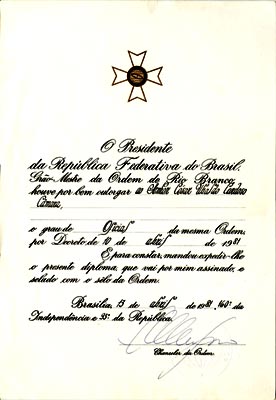 O Presidente
da República Federativa do Brasil,
Grão-Mestre da Ordem de Rio Branco,
houve por bem outorgar ao Senhor César
Câmara,
o grau de Oficial da mesma Ordem,
por Decreto de 10 de abril de 1981
E, para constar, mandou expedir-lhe
o presente diploma, que vai por mim assinado, e
selado com o sêlo da Ordem.
Brasília, 13 de abril de 1981, 160º da
Independência e 93º da República.
Chanceler da Ordem